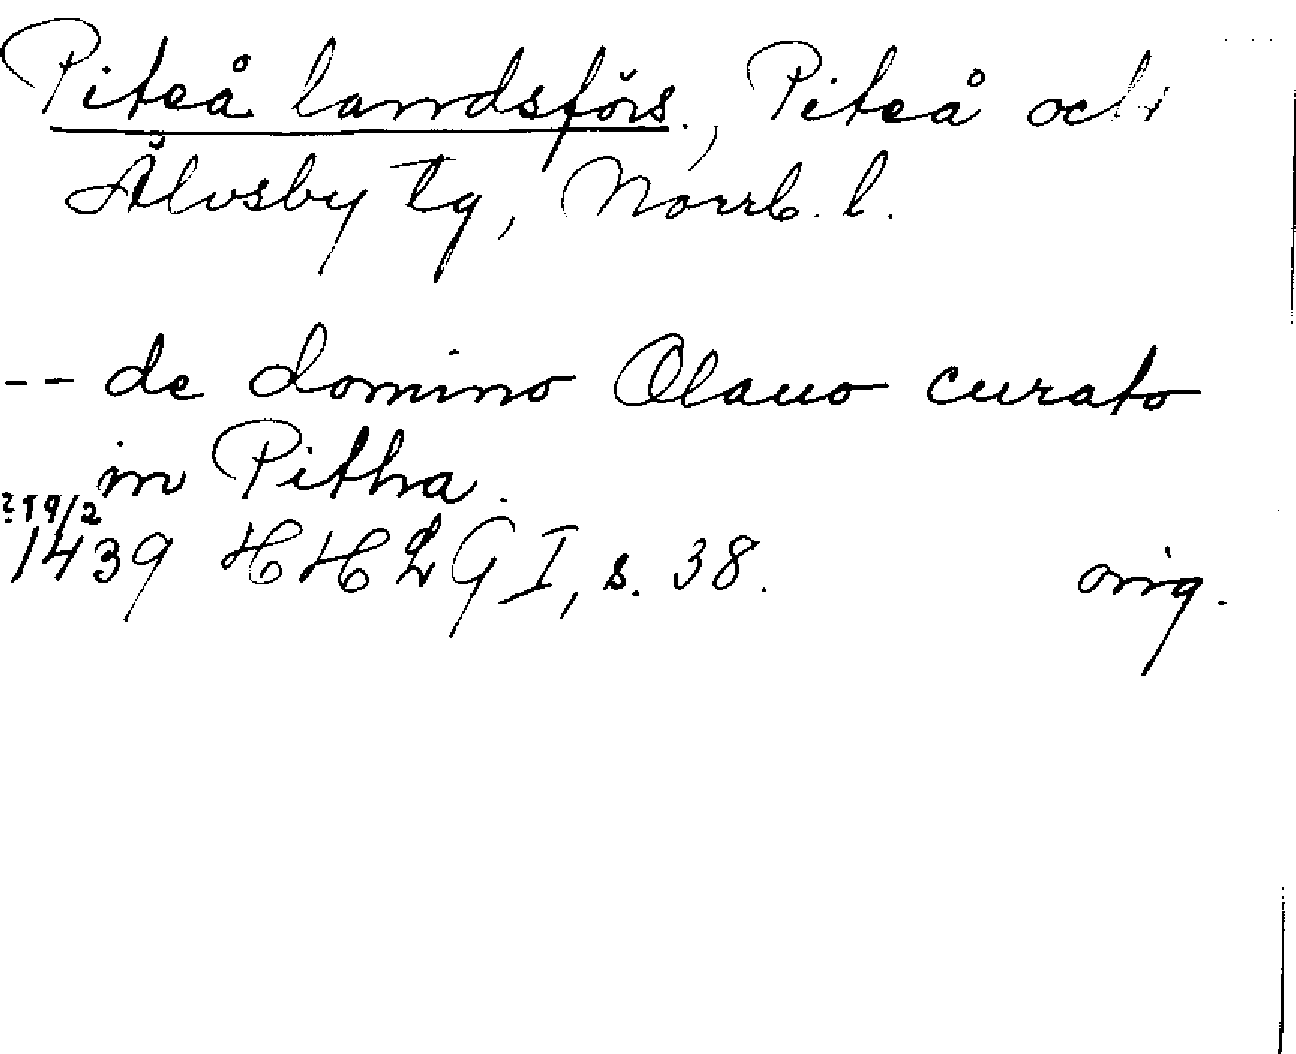 Piteå landsförs., Piteå och
Älvsby tg, Norrb. l.
-- de domino Olauo curato
in Pitha.
?19/2
1439 HHLG I, s. 38. orig.